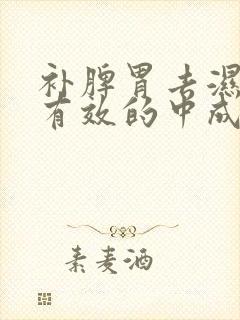 补脾胃去湿
有效的中成
素麦酒